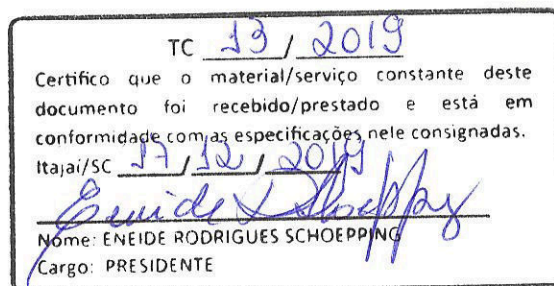 TC 13 / 2019
Certifico que o material/serviço constante deste
documento foi recebido/prestado e está em
conformidade com as especificações nele consignadas.
Itajaí/SC 17 / 12 / 2019
Eneide R Schoepping
Nome: ENEIDE RODRIGUES SCHOEPPING
Cargo: PRESIDENTE